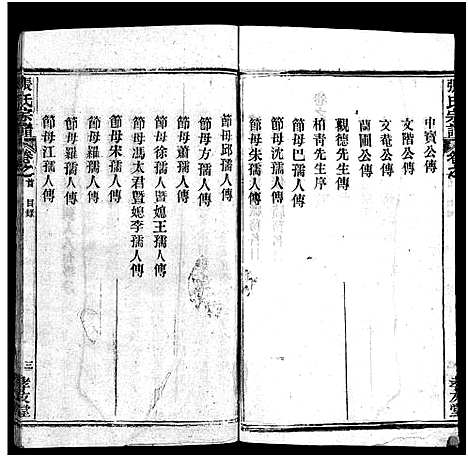 張氏宗譜
申寶公傳
文階公傳
文菴公傳
蘭圃公傳
觀德先生傳
柏青先生序
節母巴孺人傳
節母沈孺人傳
節母朱孺人傳
孝友堂
節母邱孺人傳
節母方孺人傳
節母蕭孺人傳
節母徐孺人暨媳王孺人傳
節母馮太君暨媳李孺人傳
節母宋孺人傳
節母羅孺人傳
節母江孺人傳
張氏宗譜
卷之首
目錄
三
孝友堂